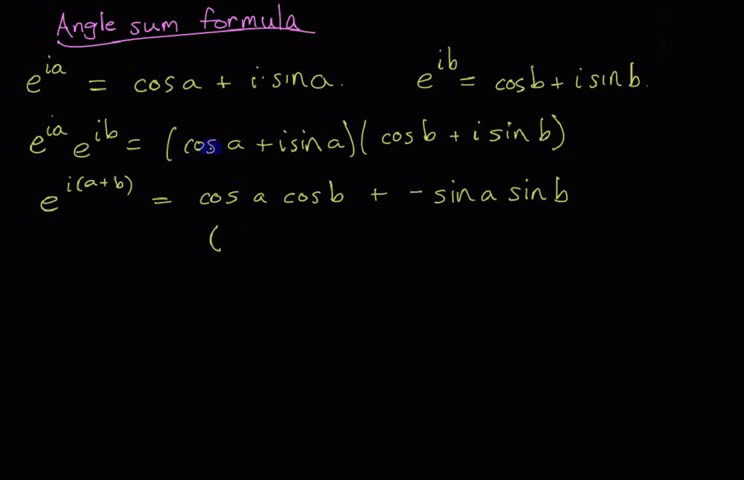 Angle sum formula
e^{ia} = cos a + i·sin a. e^{ib} = cos b + i sin b.
e^{ia} e^{ib} = (cos a + i sin a)(cos b + i sin b)
e^{i(a+b)} = cos a cos b + - sin a sin b
(